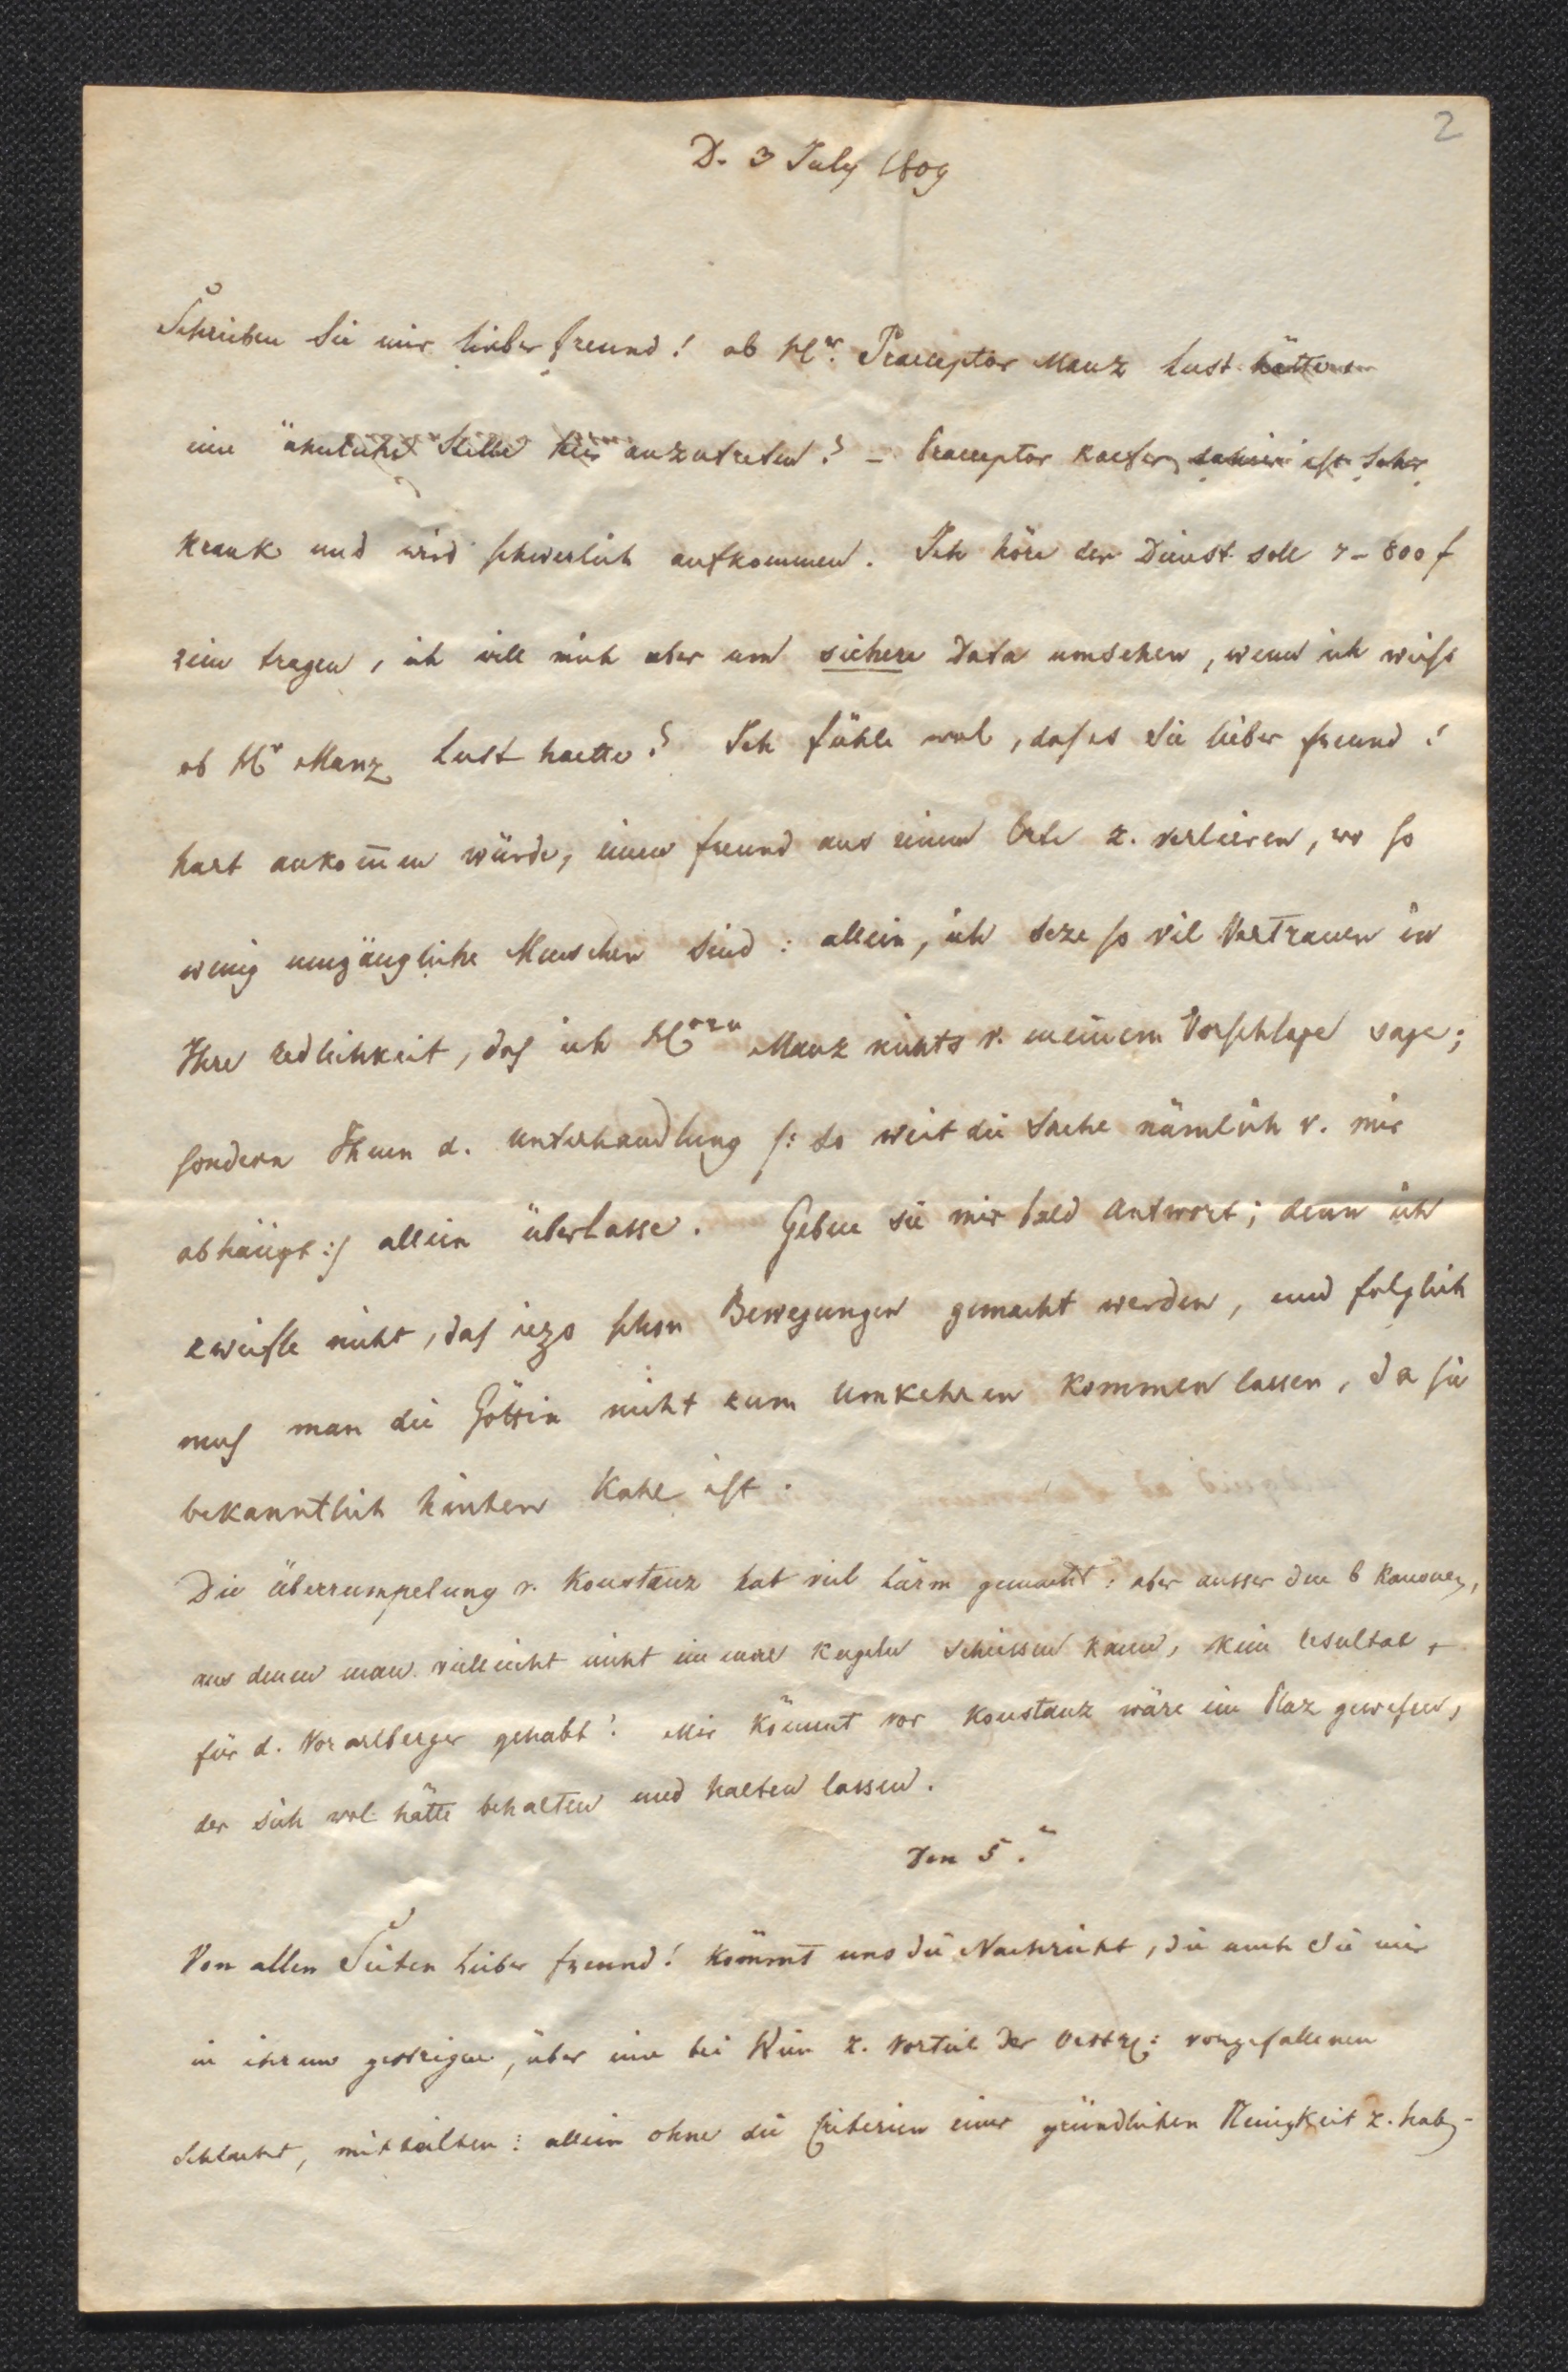 2
D. 3 July 1809
Schrieben Sie mir lieber freund! ob Hr. Praeceptor Manz Lust hätte
eine änliche Stelle hier anzutreten? – Praeceptor Kaeser ist sehr
krank und wird schwerlich aufkommen. Ich höre der Dienst soll 7–800 f
ein tragen, ich will mich aber um sichere Data umsehen, wenn ich weiss
ob Hr Manz Lust haette? Ich fühle wol, dass es Sie lieber freund!
hart ankom̅en würde, einen freund aus einem Orte z. verlieren, wo so
wenig umgängliche Menschen sind: allein, ich seze so vil Vertrauen in
Ihre redlichkeit, das ich Hrrn Manz nichts v. meinem Vorschlage sage;
sondern Ihnen d. Unterhandlung /: so weit die Sache nämlich v. mir
abhängt :/ allein überlasse. Geben sie mir bald Antwort; denn ich
zweifle nicht, das iezo schon Bewegungen gemacht werden, und folglich
mus man die Göttin nicht zum Umkehren kommen lassen, da sie
bekanntlich hinten kahl ist.
Die überrumpelung v. Konstanz hat viel Lärm gemacht: aber ausser den 6 Kanonen,
aus denen man vielleicht nicht ein mal Kugeln schiessen kann, kein resultat
für d. Vorarlberger gehabt! Mir kömmt vor Konstanz wäre ein Plaz gewesen,
der sich wol hätte behalten und halten lassen.
Den 5.
Von allen Seiten lieber freund! kömmt uns die Nachricht, die auch Sie mir
in ihrem gestrigen, über eine bei Wien z. Vorteil der Oestr: vorgefallenen
Schlacht, mittheilten: allein ohne die Criterien einer gründlichen Neuigkeit z. haben